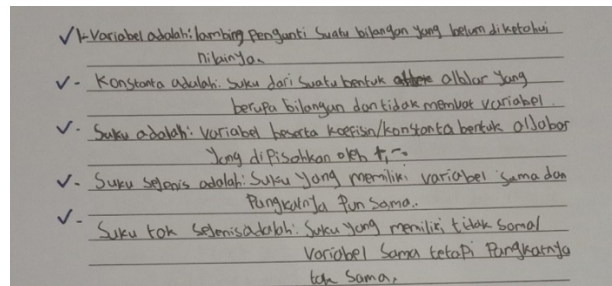 - Variabel adalah: lambing pengganti suatu bilangan yang belum diketahui
nilainya.
- Konstanta adalah: suku dari suatu bentuk alblar yang
berupa bilangan dan tidak memuat variabel.
- Suku adalah: variabel beserta koefisn/konstanta bentuk aljabar
yang dipisahkan oleh +, -.
- Suku sejenis adalah: suku yang memiliki variabel sama dan
Pangkatnya pun sama.
- Suku tak sejenis adalah: suku yang memiliki tidak sama/
variabel sama tetapi Pangkatnya
tak sama,